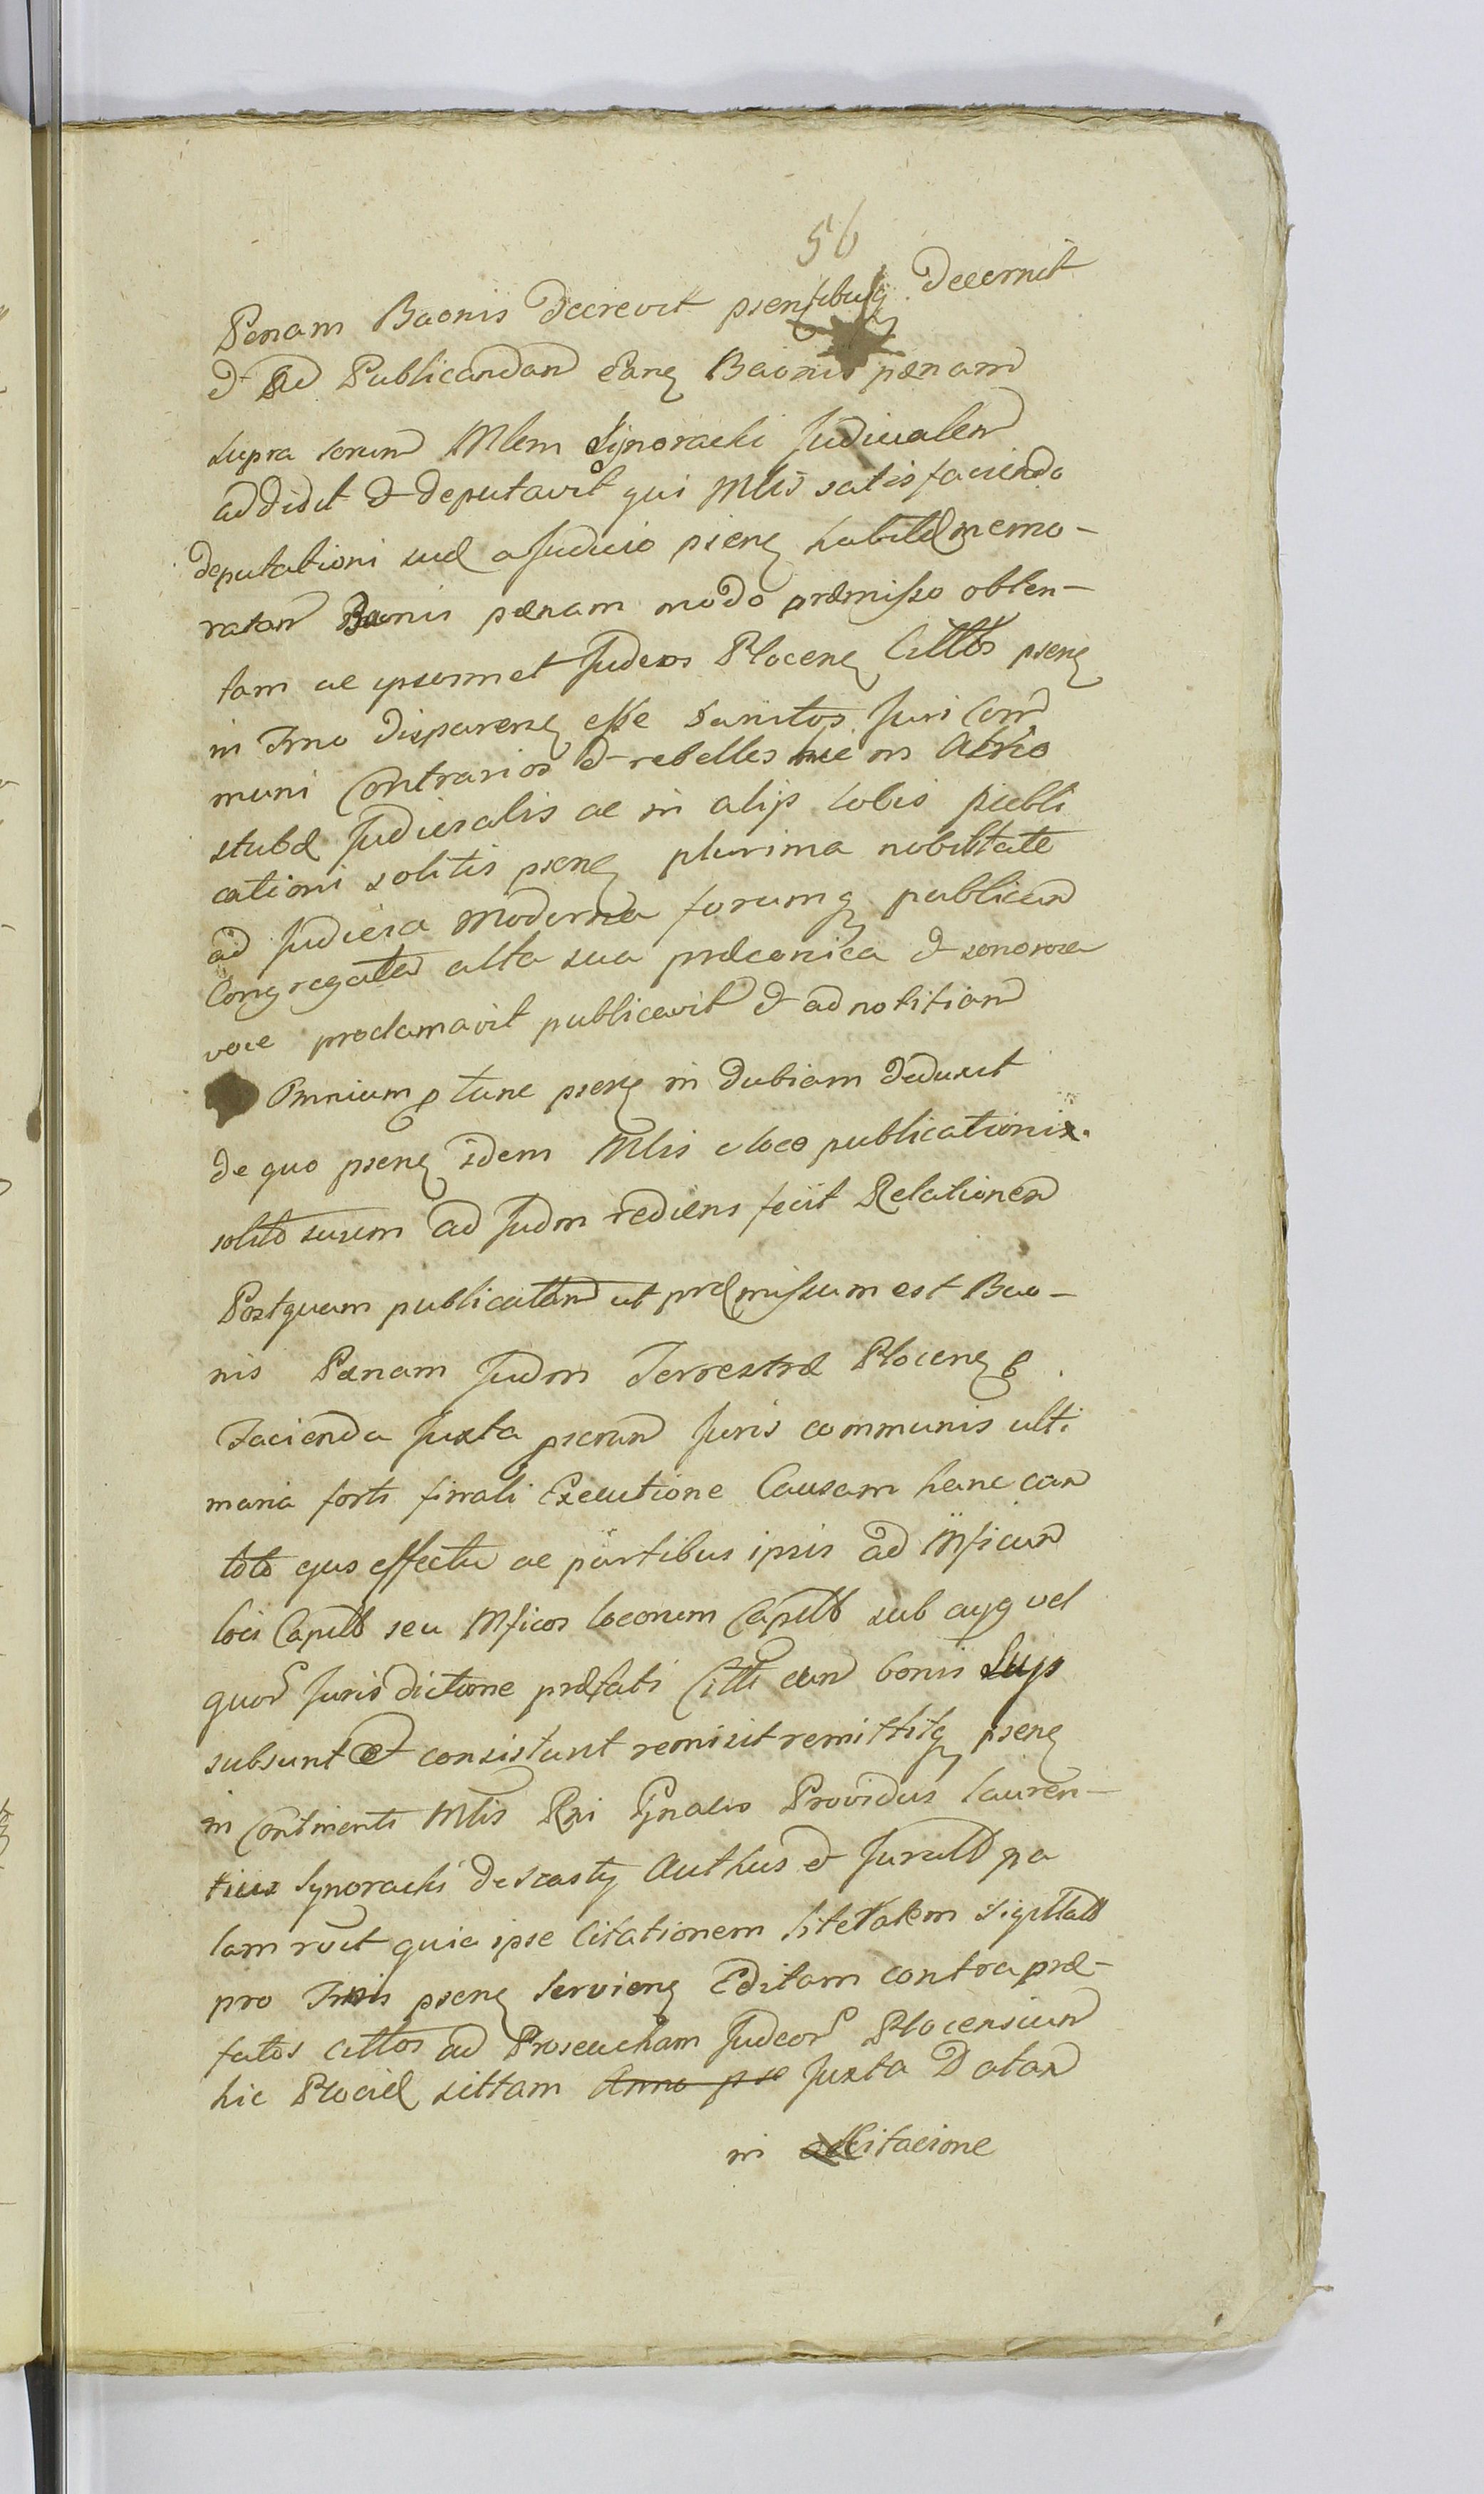 56
Penam Baonis Decrevit psentibusq Decernit
& Ad Publicandam Eanq Baonis pænam
supra scrum Mlem Synoracki Judicialem
addidit & deputavit qui Mlis satisfaciendo
deputationi suæ a Judicio psenq habitæ memo-
ratam Baonis pænam modo præmisso obten-
tam ac ipsosmet Judeos Plocenq Cittos psenq
in Tmno disparenq esse banitos Juri Com
muni Contrarios & rebelles hic in Atrio
stubæ Judicialis ac in alijs locis publi
cationi solitis psenq plurima nobilitate
ad Judicia Moderna forumq publicum
Congregata alta sua præconica & sonorosa
voce proclamavit publicavit & ad notitiam
Omnium p tunc psenq in dubiam deduxit
de quo psenq idem Mlis e loco publicationis
solito sursum ad Judm rediens fecit Relationem
Postquam publicatam ut præmissum est Bao-
nis Pænam Judm Terrestræ Plocenq p
Facienda Juxta pscrum Juris communis ulti
maria forti finali Executione Causam hanc cum
toto ejus effectu ac partibus ipsis ad Mficum
loci Capitt seu Mficos locorum Capitt sub cujq vel
quor Jurisdictione præfati Citti cum bonis Suis
subsunt et consistunt remisit remittitq psenq
in Continenti Mlis Rni Gnalis Providus lauren-
tius Synoracki de Scasty Authus & Juratt pa
lam rvit quia ipse Citationem literalem sigittatt
pro Tmis psenq Servienq Editam contra præ-
fatos cittos ad Proseucham Judeor Plocensium
hic Plociæ sittam Anno pse Juxta Datam
in Citacione